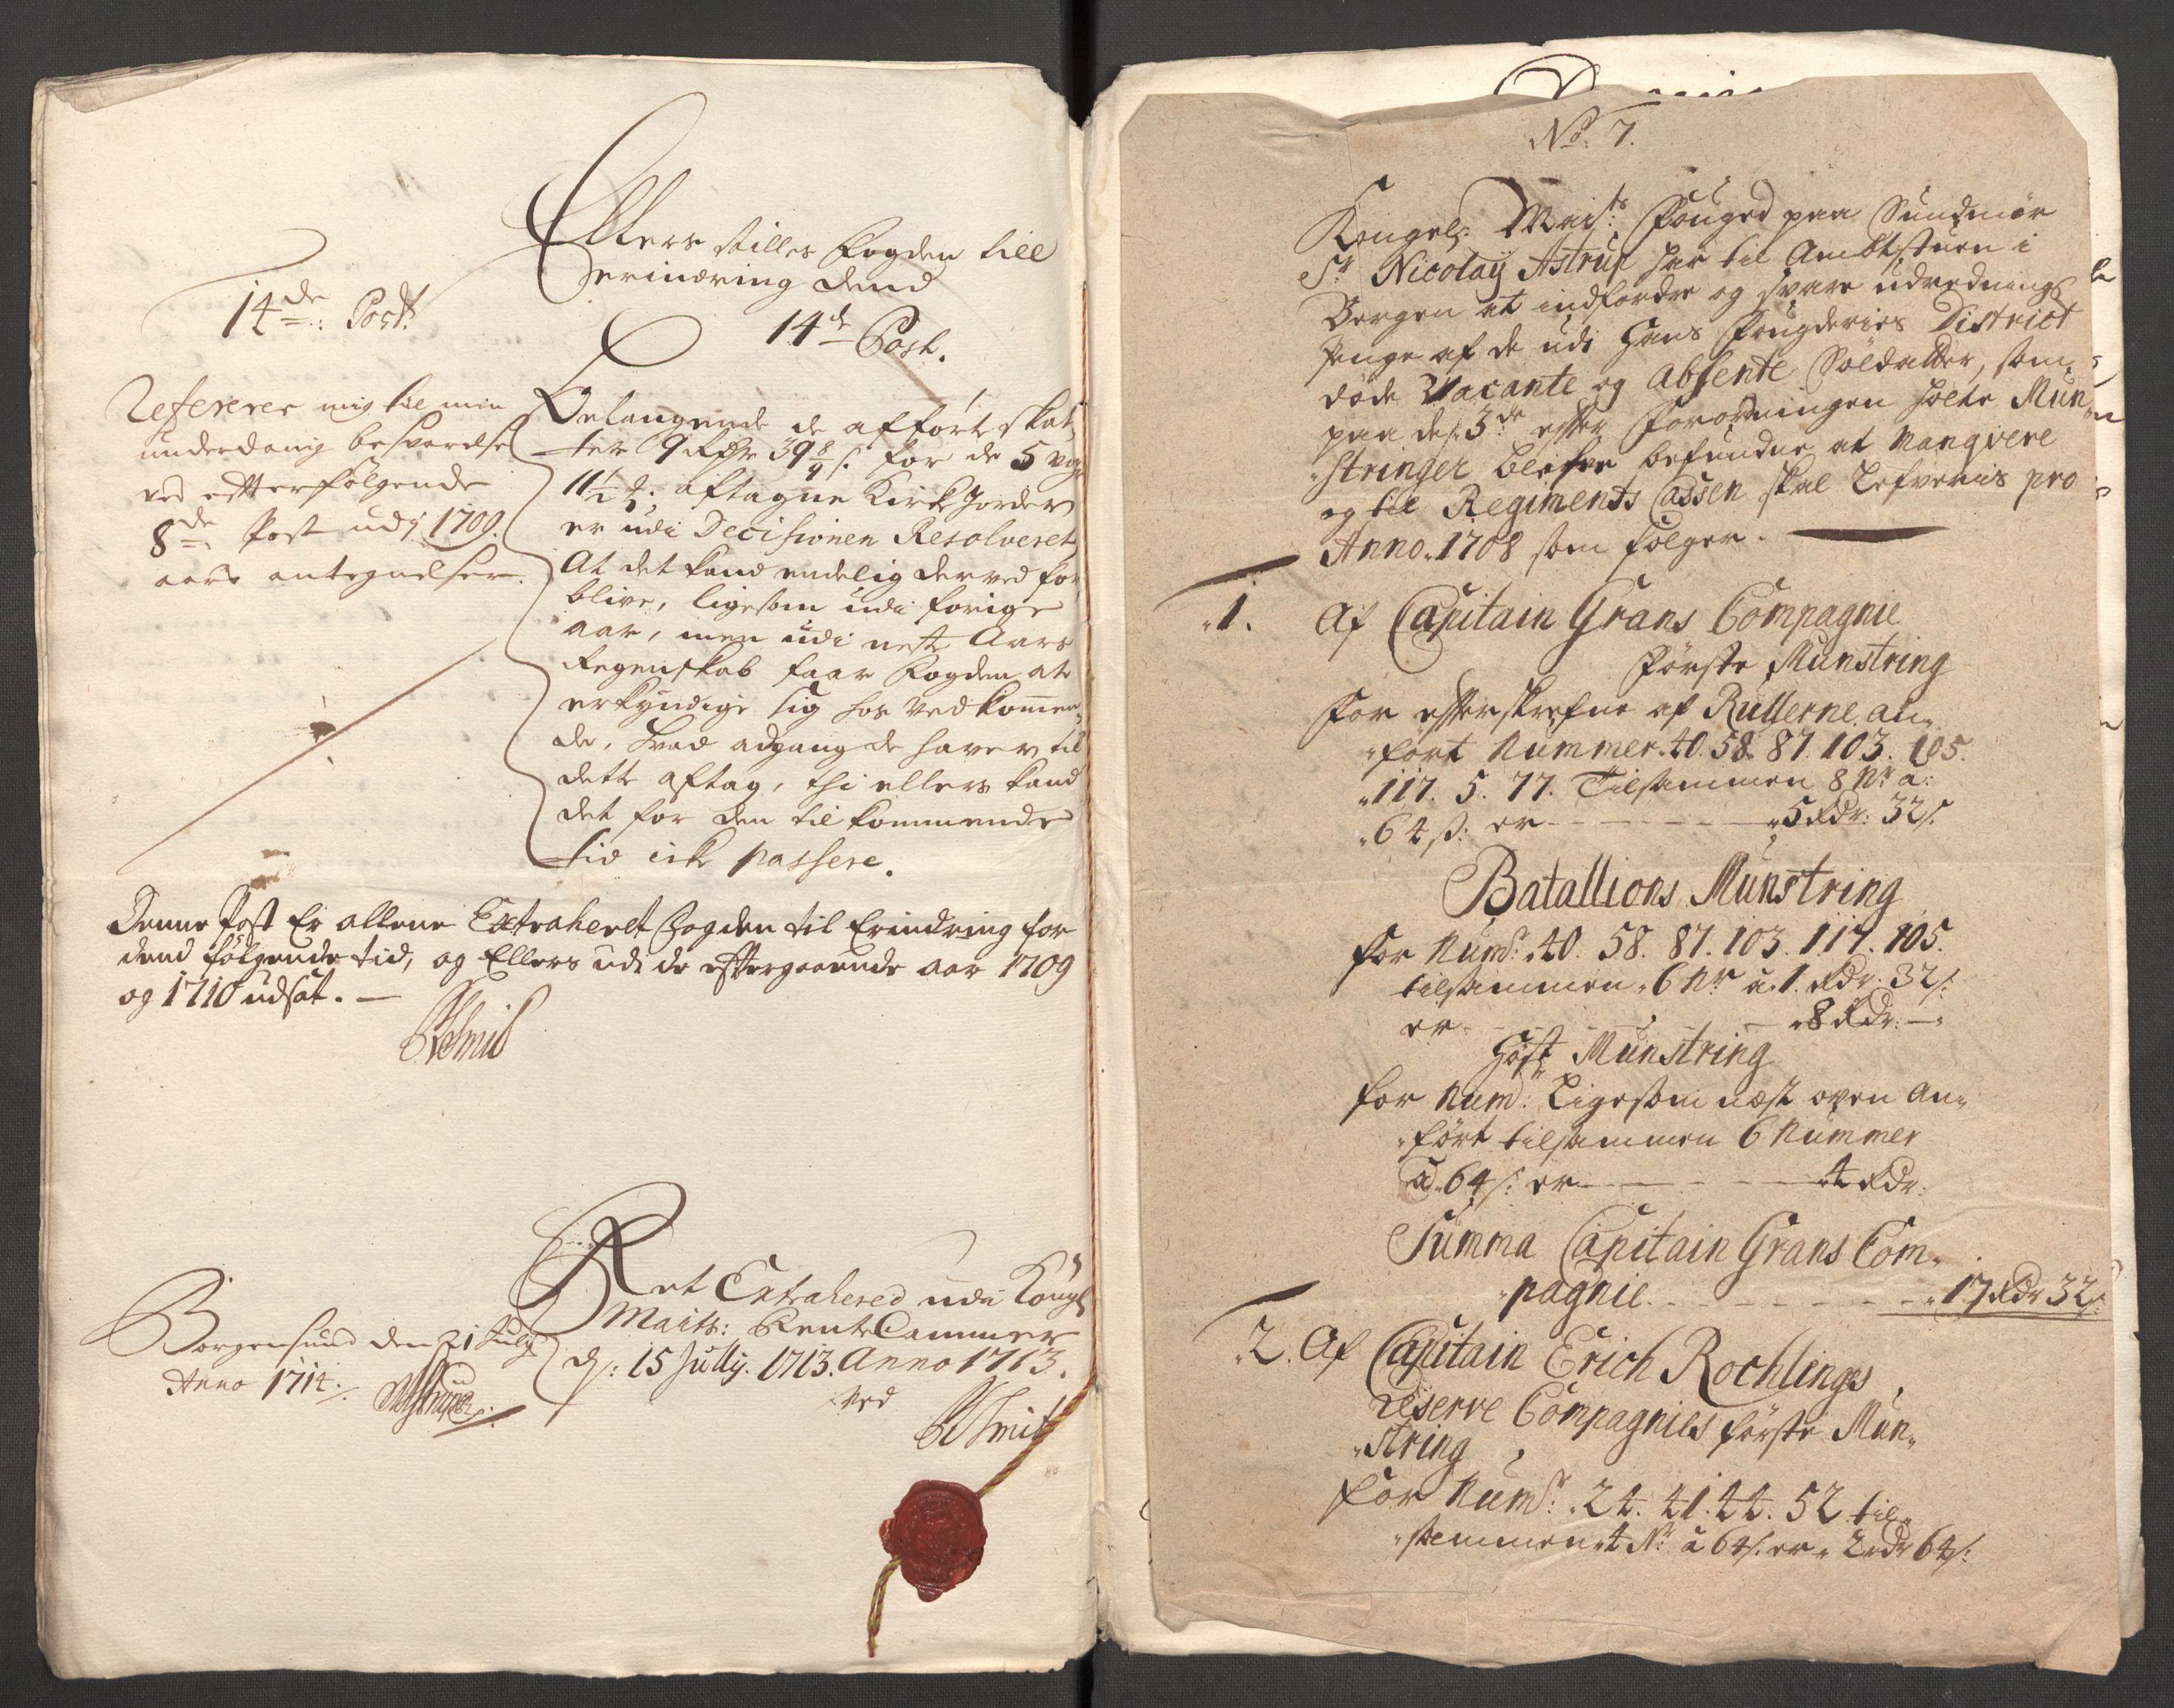 14de: Post.
Refererer mig til min
underdanig besvarelse
ved effterfølgende
8de Post udj 1709.
aars antegnelser.
Ellers stilles Fogden till
erindring dend
14de Post.
Belangende de afførte skat-
ter 9 Rdr 39 8/9 s. for de 5 vog
11 1/2 aftagne Kirke Jorder
er udi Decisionen Resolveret
At det kand endelig derved for
blive, ligesom udi forige
aar, men udi neste Aars
Regenskab faar Fogden at
erkyndige sig hos vedkommen-
de, hvad adgang de haver til
dette aftag, thi ellers kand
det for den tilkommende
tid icke passere.
Denne Post Er allene Extraheret Fogden til Erindring for
dend følgende tid, og Ellers udi de effterfaaende aar 1709
og 1710 udsat. —
Smid
Borgensund den 21 July
Anno 1714.
NAstrup
Ret Extrahered udi Kongl
Maits: Rente Cammer
d: 15 Julij. 1713. Anno 1713.
ved
Smit
No: 7.
Kongel: Maits: Fouged paa Sundmør
Sr Nicolay Astrup har til Ambtstuen i
Bergen at indfordre og svare udrednings
penge af de udi Hans Fougderies District
døde Vacante og Absente Soldatter, som
paa de 3de effter Forordningen holte Mun-
stringer blefve befundne at Manqvere
og til Regiments Cassen skal Lefveris pro
Anno 1708 som følger.
1. Af Capitain Grans Compagnie
Første Munstring
For effterskrefne af Rullerne an-
ført Nummer. 40. 58. 87. 103. 105.
117. 5. 77. Tilsammen 8 Nr a:
64 s: er - - - 5 Rdr: 32 s.
Batallions Munstring
For Numr: 40. 58. 87. 103. 117. 105.
tilsammen 6 Nr a 1. Rdr. 32 s:
er - - - 8 Rdr: —
Høst Munstring
for Num: Ligesom nest oven an-
ført tilsammen 6 Nummer
a 64 s: er - - - 4 Rdr:
Summa Capitain Grans Com-
pagnie - - - 17 Rdr 32 s:
2. Af Capitain Erich Rochlings
Reserve Compagnies første Mun-
string
For Numr: 24. 41. 44. 52 til-
sammen 4 Nr: a 64 s. er 2 rdr 64 s: